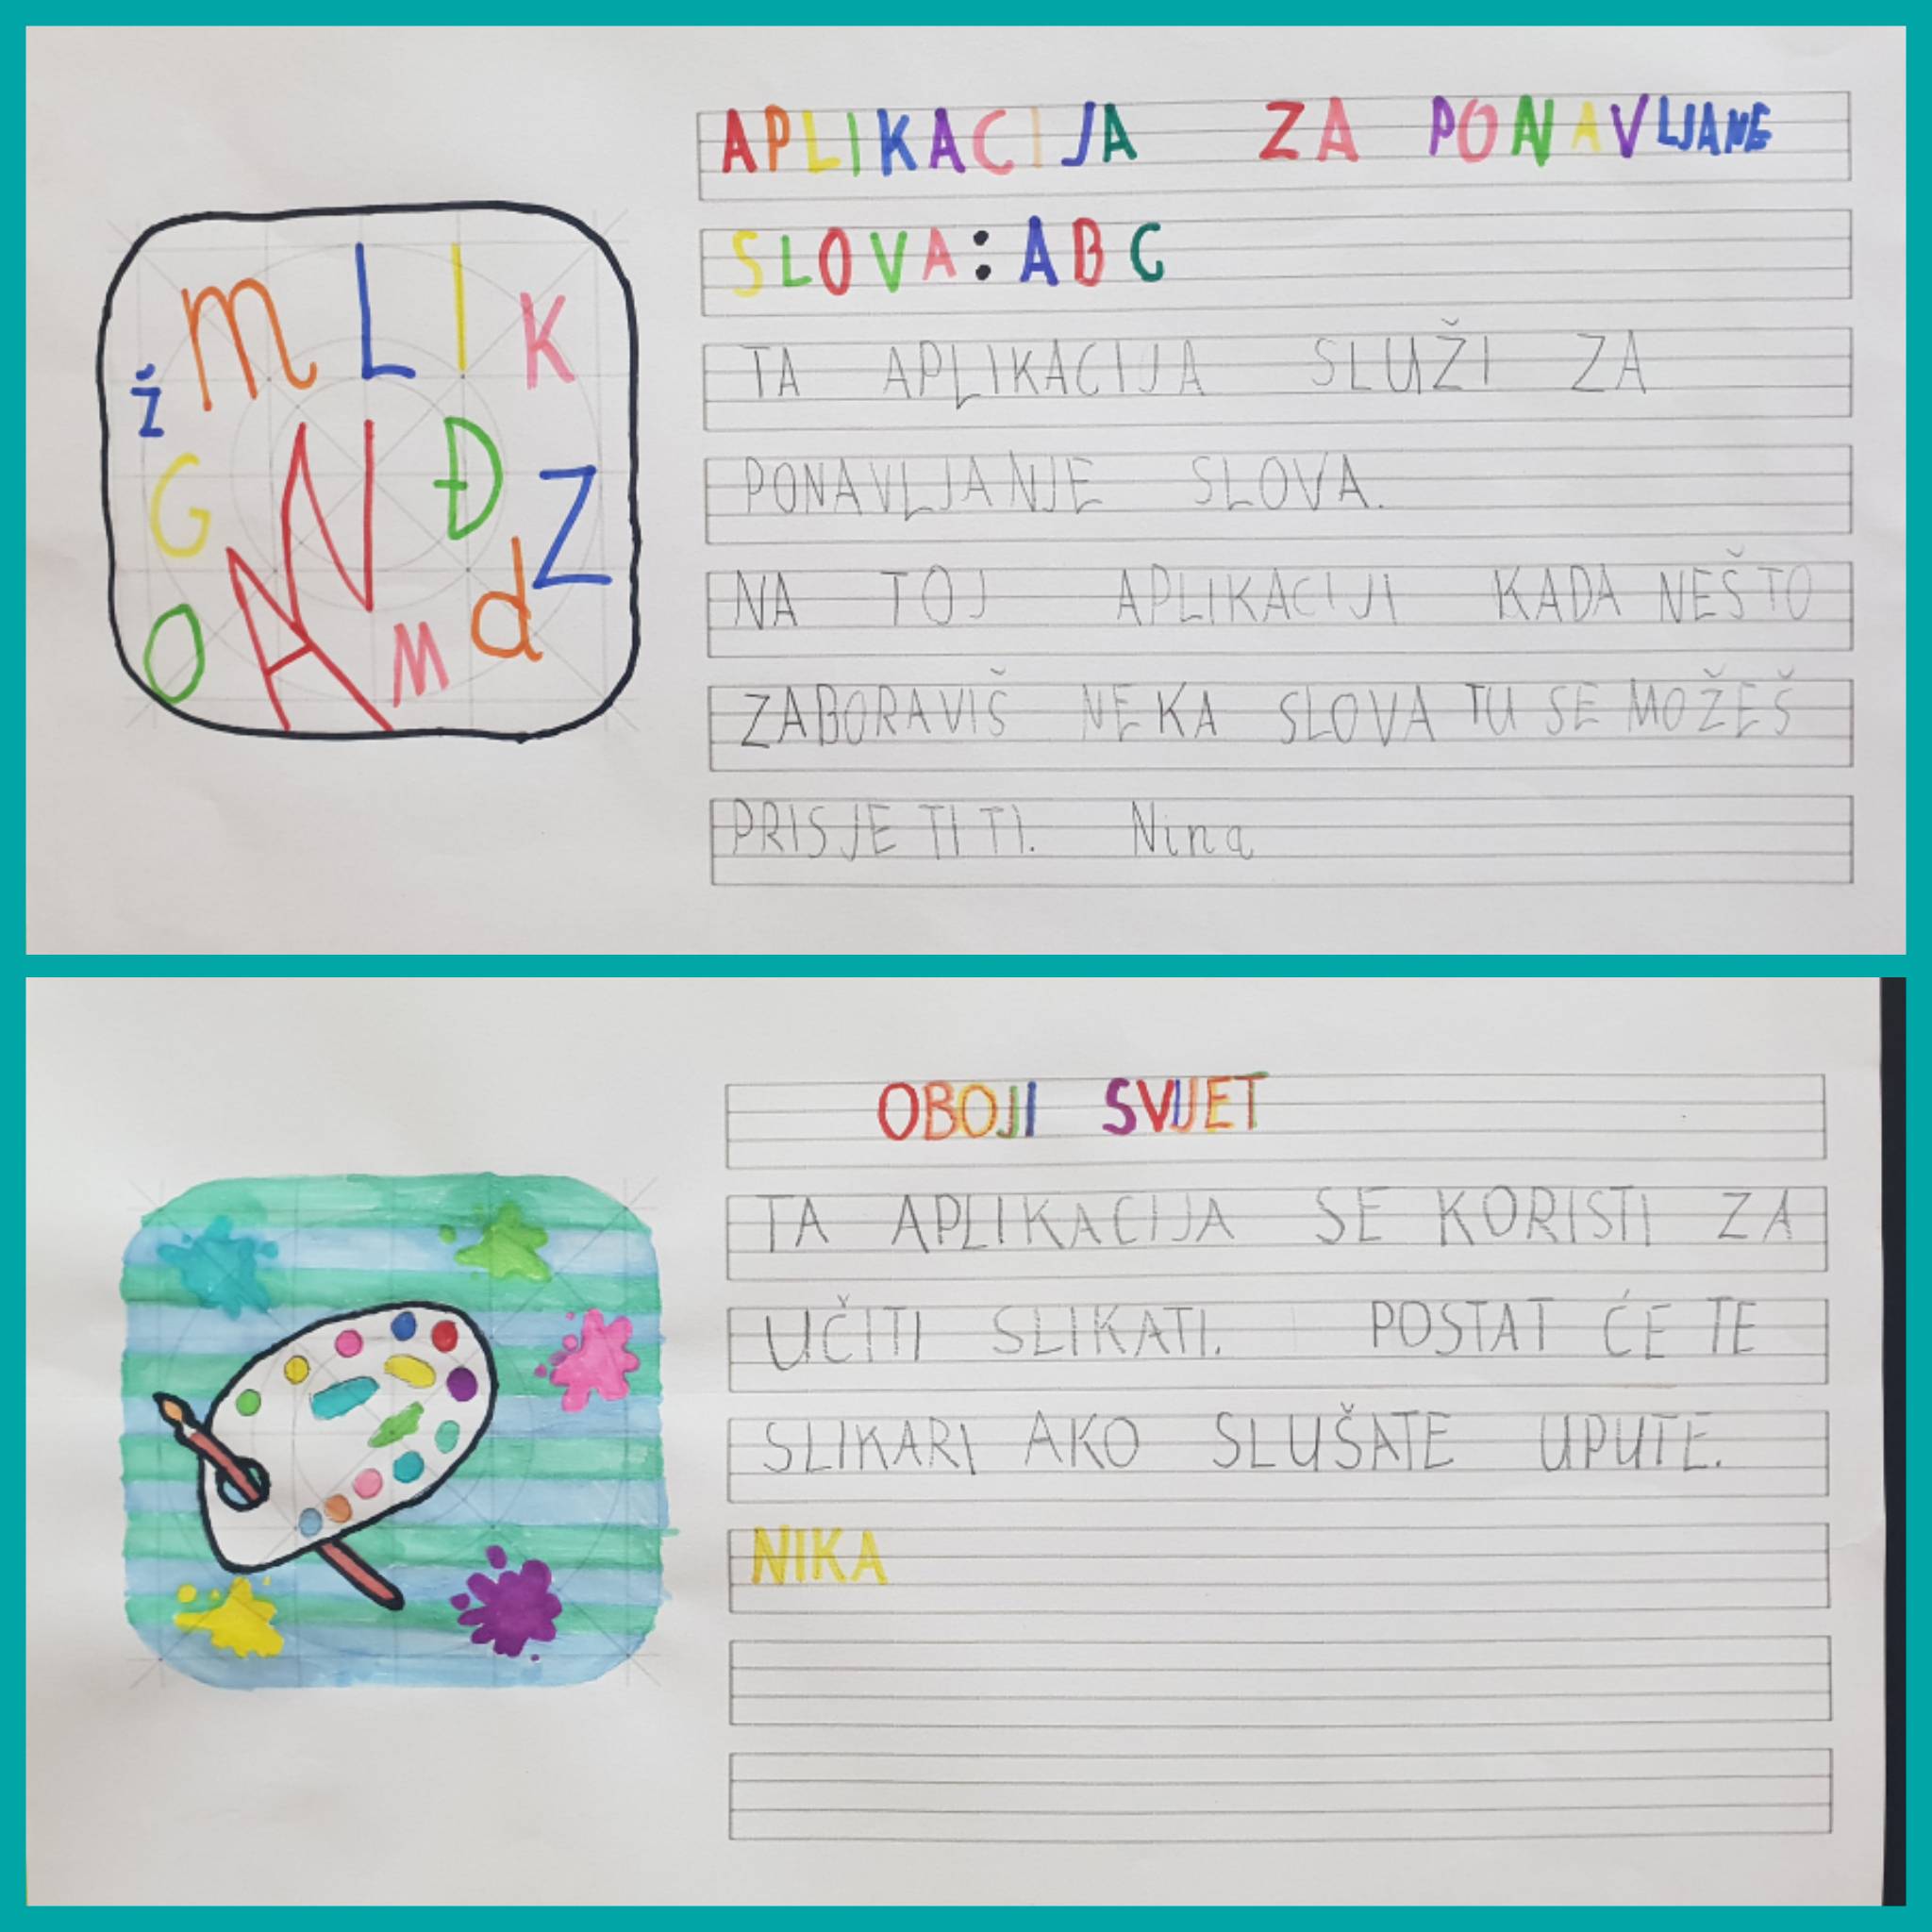 APLIKACIJA ZA PONAVLJANE
SLOVA: ABC
TA APLIKACIJA SLUŽI ZA
PONAVLJANJE SLOVA.
NA TOJ APLIKACIJI KADA NEŠTO
ZABORAVIŠ NEKA SLOVA TU SE MOŽEŠ
PRISJETITI. Nina
m L I K
ž
G N Đ Z
O A M d
OBOJI SVIJET
TA APLIKACIJA SE KORISTI ZA
UČITI SLIKATI. POSTAT ĆE TE
SLIKARI AKO SLUŠATE UPUTE.
NIKA